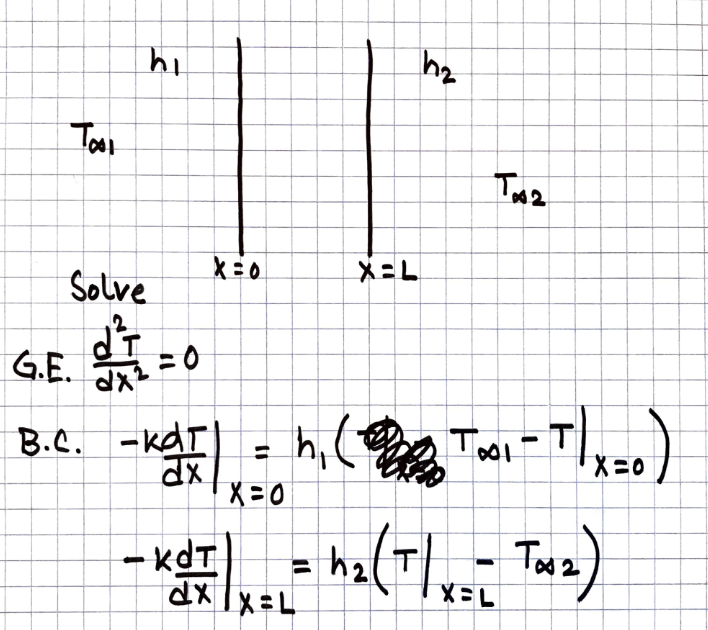 h1 h2
T∞1
T∞2
x=0 x=L
Solve
G.E. d²T/dx² = 0
B.C. -kdT/dx|x=0 = h1(T∞1 - T|x=0)
-kdT/dx|x=L = h2(T|x=L - T∞2)